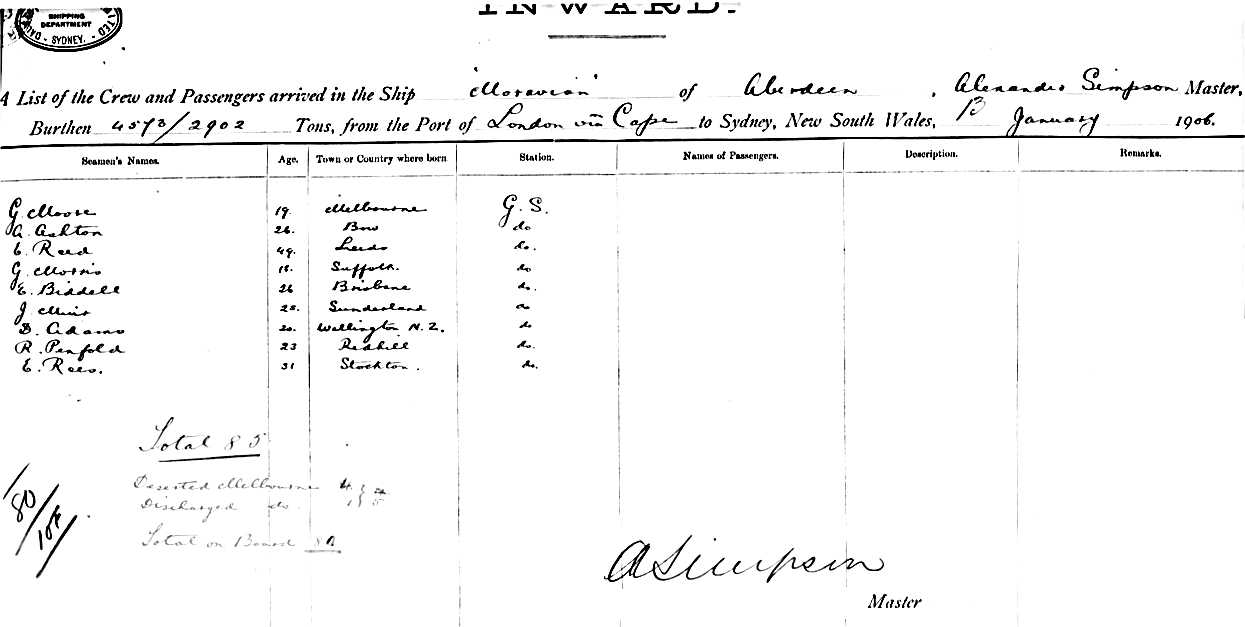 INWARD.
SHIPPING
DEPARTMENT
SYDNEY.
A List of the Crew and Passengers arrived in the Ship "Moravian" of Aberdeen, Alexander Simpson Master,
Burthen 4573/2902 Tons, from the Port of London via Cape to Sydney, New South Wales, 13 January 1906.
Seamen's Names. Age. Town or Country where born Station. Names of Passengers. Description. Remarks.
G. Moore 19. Melbourne G.S.
A. Ashton 26. Bow do
E. Reed 49. Leeds do.
G. Morris 18. Suffolk. do
E. Biddell 26 Brisbane do.
J. Muir 25. Sunderland do
D. Adams 20. Wellington N.Z. do
R. Penfold 23 Redhill do.
E. Rees. 31 Stockton. do.
Total 85
Deserted Melbourne 4
Discharged do. 1 5
Total on Board 80
80/104
A Simpson
Master